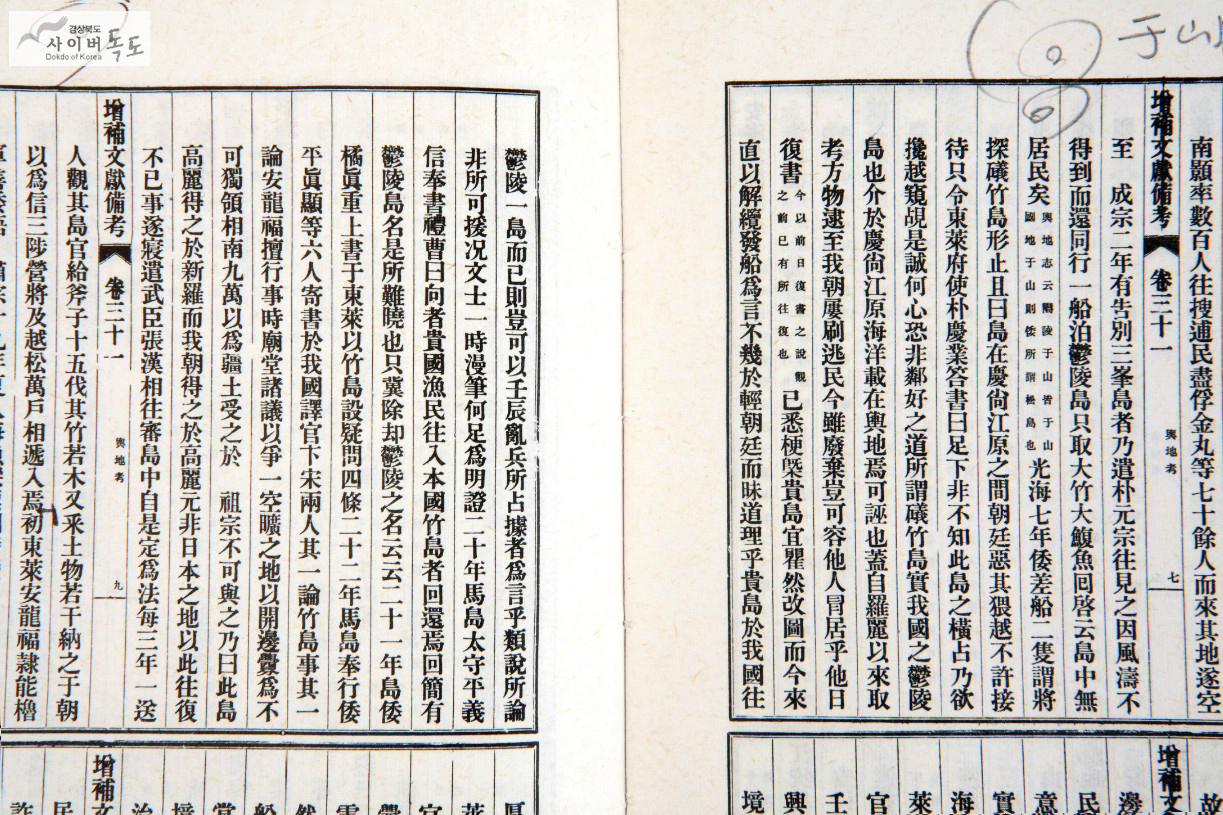 경상북도
사이버독도
Dokdo of Korea
于山
南顥率數百人往搜逋民盡俘金丸等七十餘人而來其地遂空
增補文獻備考 卷三十一 輿地考 七
至 成宗二年有告別三峯島者乃遣朴元宗往見之因風濤不
得到而還同行一船泊鬱陵島只取大竹大鰒魚回啓云島中無
居民矣 輿地志云鬱陵于山皆于山國地于山則倭所謂松島也 光海七年倭差船二隻謂將
探礒竹島形止且曰島在慶尙江原之間朝廷惡其猥越不許接
待只令東萊府使朴慶業答書曰足下非不知此島之橫占乃欲
攙越窺覘是誠何心恐非鄰好之道所謂礒竹島實我國之鬱陵
島也介於慶尙江原海洋載在輿地焉可誣也蓋自羅麗以來取
考方物逮至我朝屢刷逃民今雖廢棄豈可容他人冒居乎他日
復書 今以前日復書之說觀之前已有所往復也 已悉梗槩貴島宜瞿然改圖而今來
直以解纜發船爲言不幾於輕朝廷而昧道理乎貴島於我國往
鬱陵一島而已則豈可以壬辰亂兵所占據者爲言乎類說所論
非所可援况文士一時漫筆何足爲明證二十年馬島太守平義
信奉書禮曹曰向者貴國漁民往入本國竹島者回還焉回簡有
鬱陵島名是所難曉也只冀除却鬱陵之名云云二十一年島倭
橘眞重上書于東萊以竹島設疑問四條二十二年馬島奉行倭
平眞顯等六人寄書於我國譯官卞宋兩人其一論竹島事其一
論安龍福擅行事時廟堂諸議以爭一空曠之地以開邊釁爲不
可獨領相南九萬以爲疆土受之於 祖宗不可與之乃曰此島
高麗得之於新羅而我朝得之於高麗元非日本之地以此往復
不已事遂寢遣武臣張漢相往審島中自是定爲法每三年一送
增補文獻備考 卷三十一 輿地考 九
人觀其島官給斧子十五伐其竹若木又釆土物若干納之于朝
以爲信三陟營將及越松萬戶相遞入焉初東萊安龍福隸能櫓
故
增補文
邊
民
意
實
海
萊
官
壬
興
境
萊
官
然
當
境
治
增補文
民
詐